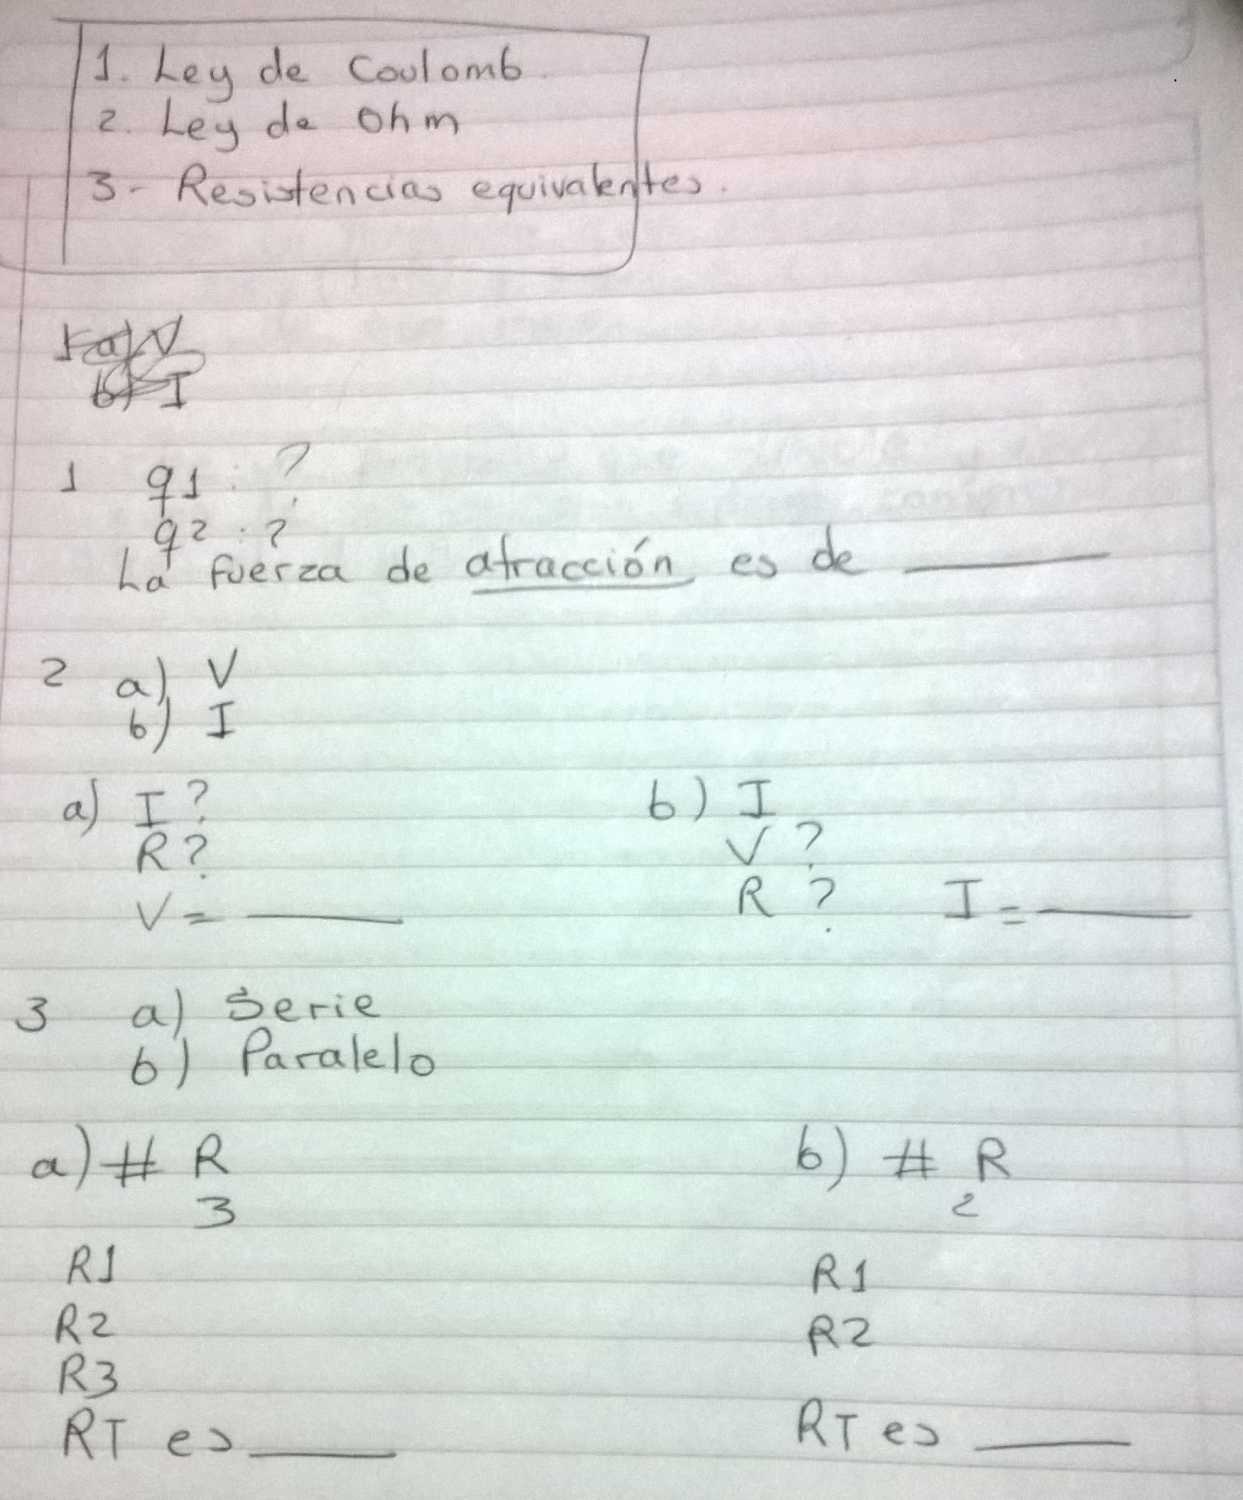 1. Ley de Coulomb.
2. Ley de Ohm
3- Resistencias equivalentes.
1 a) V
b) I
1 q1 : ?
q2 : ?
La fuerza de atracción es de ______
2 a) V
b) I
a) I ? b) I
R ? V ?
V = ______ R ? I = ______
3 a) Serie
b) Paralelo
a) # R b) # R
3 2
R1 R1
R2 R2
R3
RT es ______ RT es ______